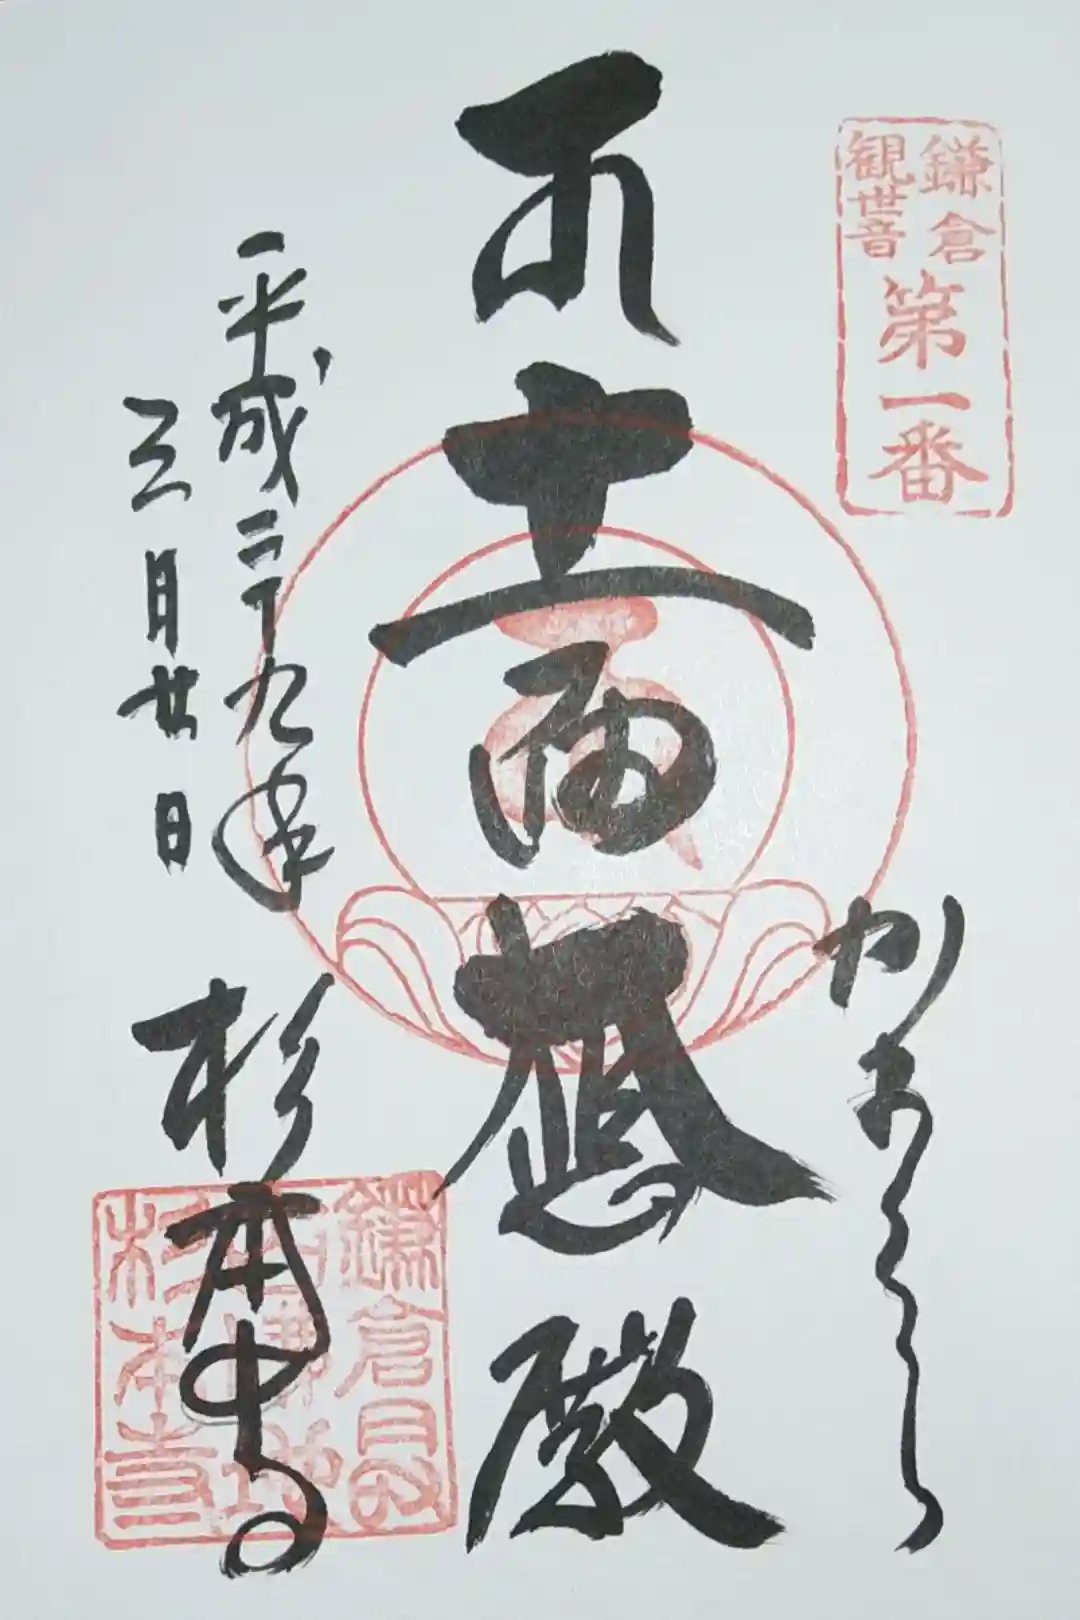 鎌倉
観世音
第一番
かまくら
十一面
殿
平成二十九年
三月廿日
杉本寺
鎌倉最
杉本寺